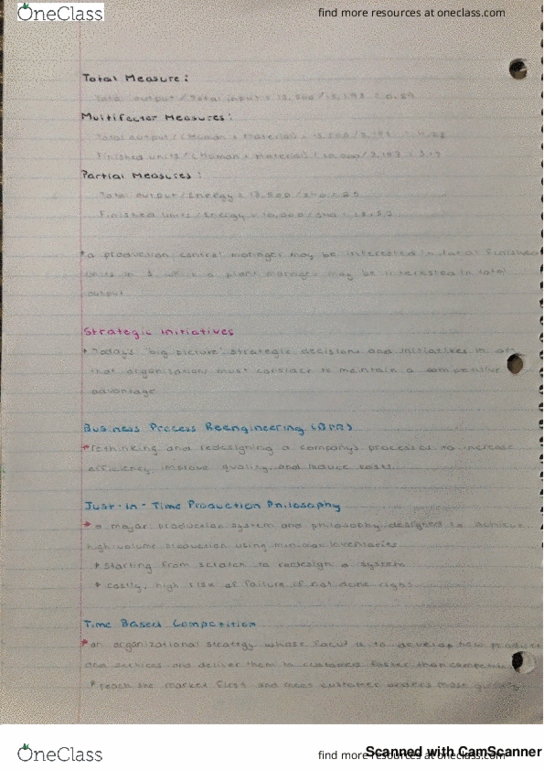 OneClass
find more resources at oneclass.com
Total Measure:
Total output / Total input = 13,500 / 15,193 = 0.89
Multifactor Measures:
Total output / (Human + Material) =
Finished units / (Human + material) =
Partial Measures:
Total output / Energy = 13,500 / 540 = 25
Finished units / Energy = 10,000 / 540 =
a production control manager may be interested in total finished
units in a plant manager may be interested in total
output
Strategic Initiatives
Today's "big picture" strategic decisions and initiatives
that organizations must consider to maintain a competitive
advantage
Business Process Reengineering (BPR)
Rethinking and redesigning a company's processes to increase
efficiency, improve quality, and reduce costs
Just-in-Time Production Philosophy
a major production system and philosophy designed to achieve
high-volume production using minimal inventories
starting from scratch to redesign a system
costly, high risk of failure if not done right
Time Based Competition
an organizational strategy whose focus is to develop new products
and services and deliver them to customers faster than
reach the market first and meet customer
OneClass
find more resources at oneclass.com
Scanned with CamScanner